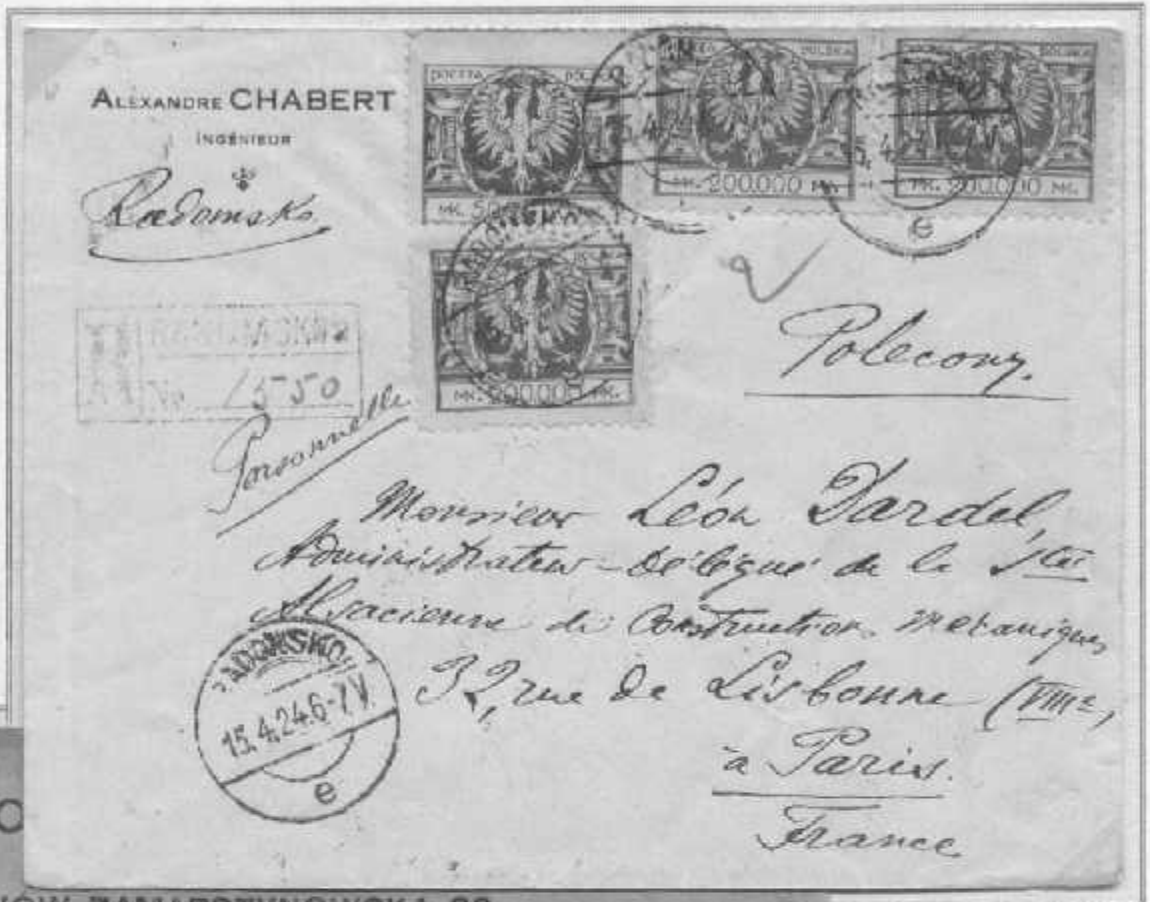 ALEXANDRE CHABERT
INGÉNIEUR
Radomsko
POCZTA POLSKA
POCZTA POLSKA
POCZTA POLSKA
MK. 200.000 MK.
MK. 200.000 MK.
RADOMSKO
No 1550
Polecony.
Personnelle
Monsieur Léon Dardel,
Administrateur-Délégué de la Sté
Alsacienne de Construction mécaniques
32, rue de Lisbonne (VIIIe,
à Paris.
France
RADOMSKO
15.4.24.6-7V.
e
e